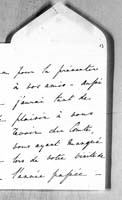 pour la présenter
à vos amis — aussi
j'aurai tant de
plaisir à vous
revoir
vous ayant manqué
lors de votre visite de
l'année passée —